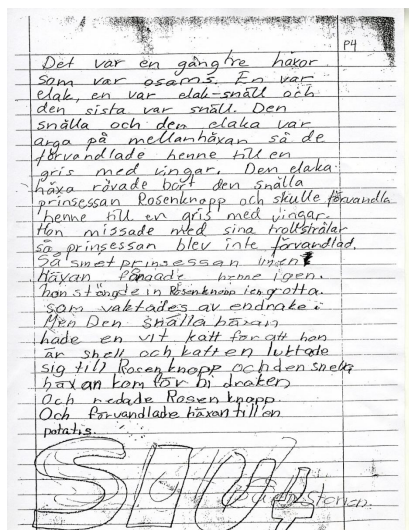 P4
Det var en gång tre häxor
som var osams. En var
elak, en var elak-snäll och
den sista var snäll. Den
snälla och den elaka var
arga på mellanhäxan så de
förvandlade henne till en
gris med vingar. Den elaka
häxa rövade bort den snälla
prinsessan Rosenknopp och skulle förvandla
henne till en gris med vingar.
Hon missade med sina trollstrålar
så prinsessan blev inte förvandlad.
Så smet prinsessan
Häxan fångade henne igen.
hon stängde in Rosenknopp i en grotta.
som vaktades av endrake.
Men Den snälla häxan
hade en vit katt för att hon
är snell och katten luktade
sig till Rosenknopp och den snella
häxan kom för bi draken
Och redade Rosenknopp.
Och förvandlade häxan till en
potatis.
SLUT